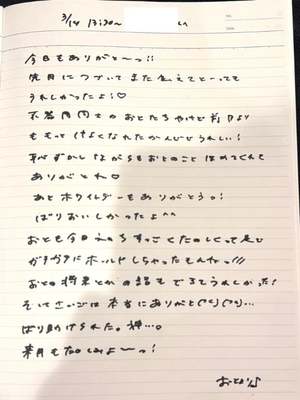 3/14 13:30〜 さん
今日もありがと〜っ!!
先月につづいてまた会えてとーっても
うれしかったよ!♡
不器用同士のおとたちやけど前より
ももっとけよくなれたかんじでうれしい!
恥ずかしながらもおとのことほめてくれて
ありがとね♡
あとホワイトデーもありがとうっ!
ばりおいしかったよ^^
おとも今日えっちすっごくたのしくって足び
ガチガチにホールドしちゃったもんねっ!!
おとの将来とかの話もできてうれしかった!
そしてさいごは本当にありがと
ばり助けられた。神…。
来月もたのしみよ〜っ!
おとより♪